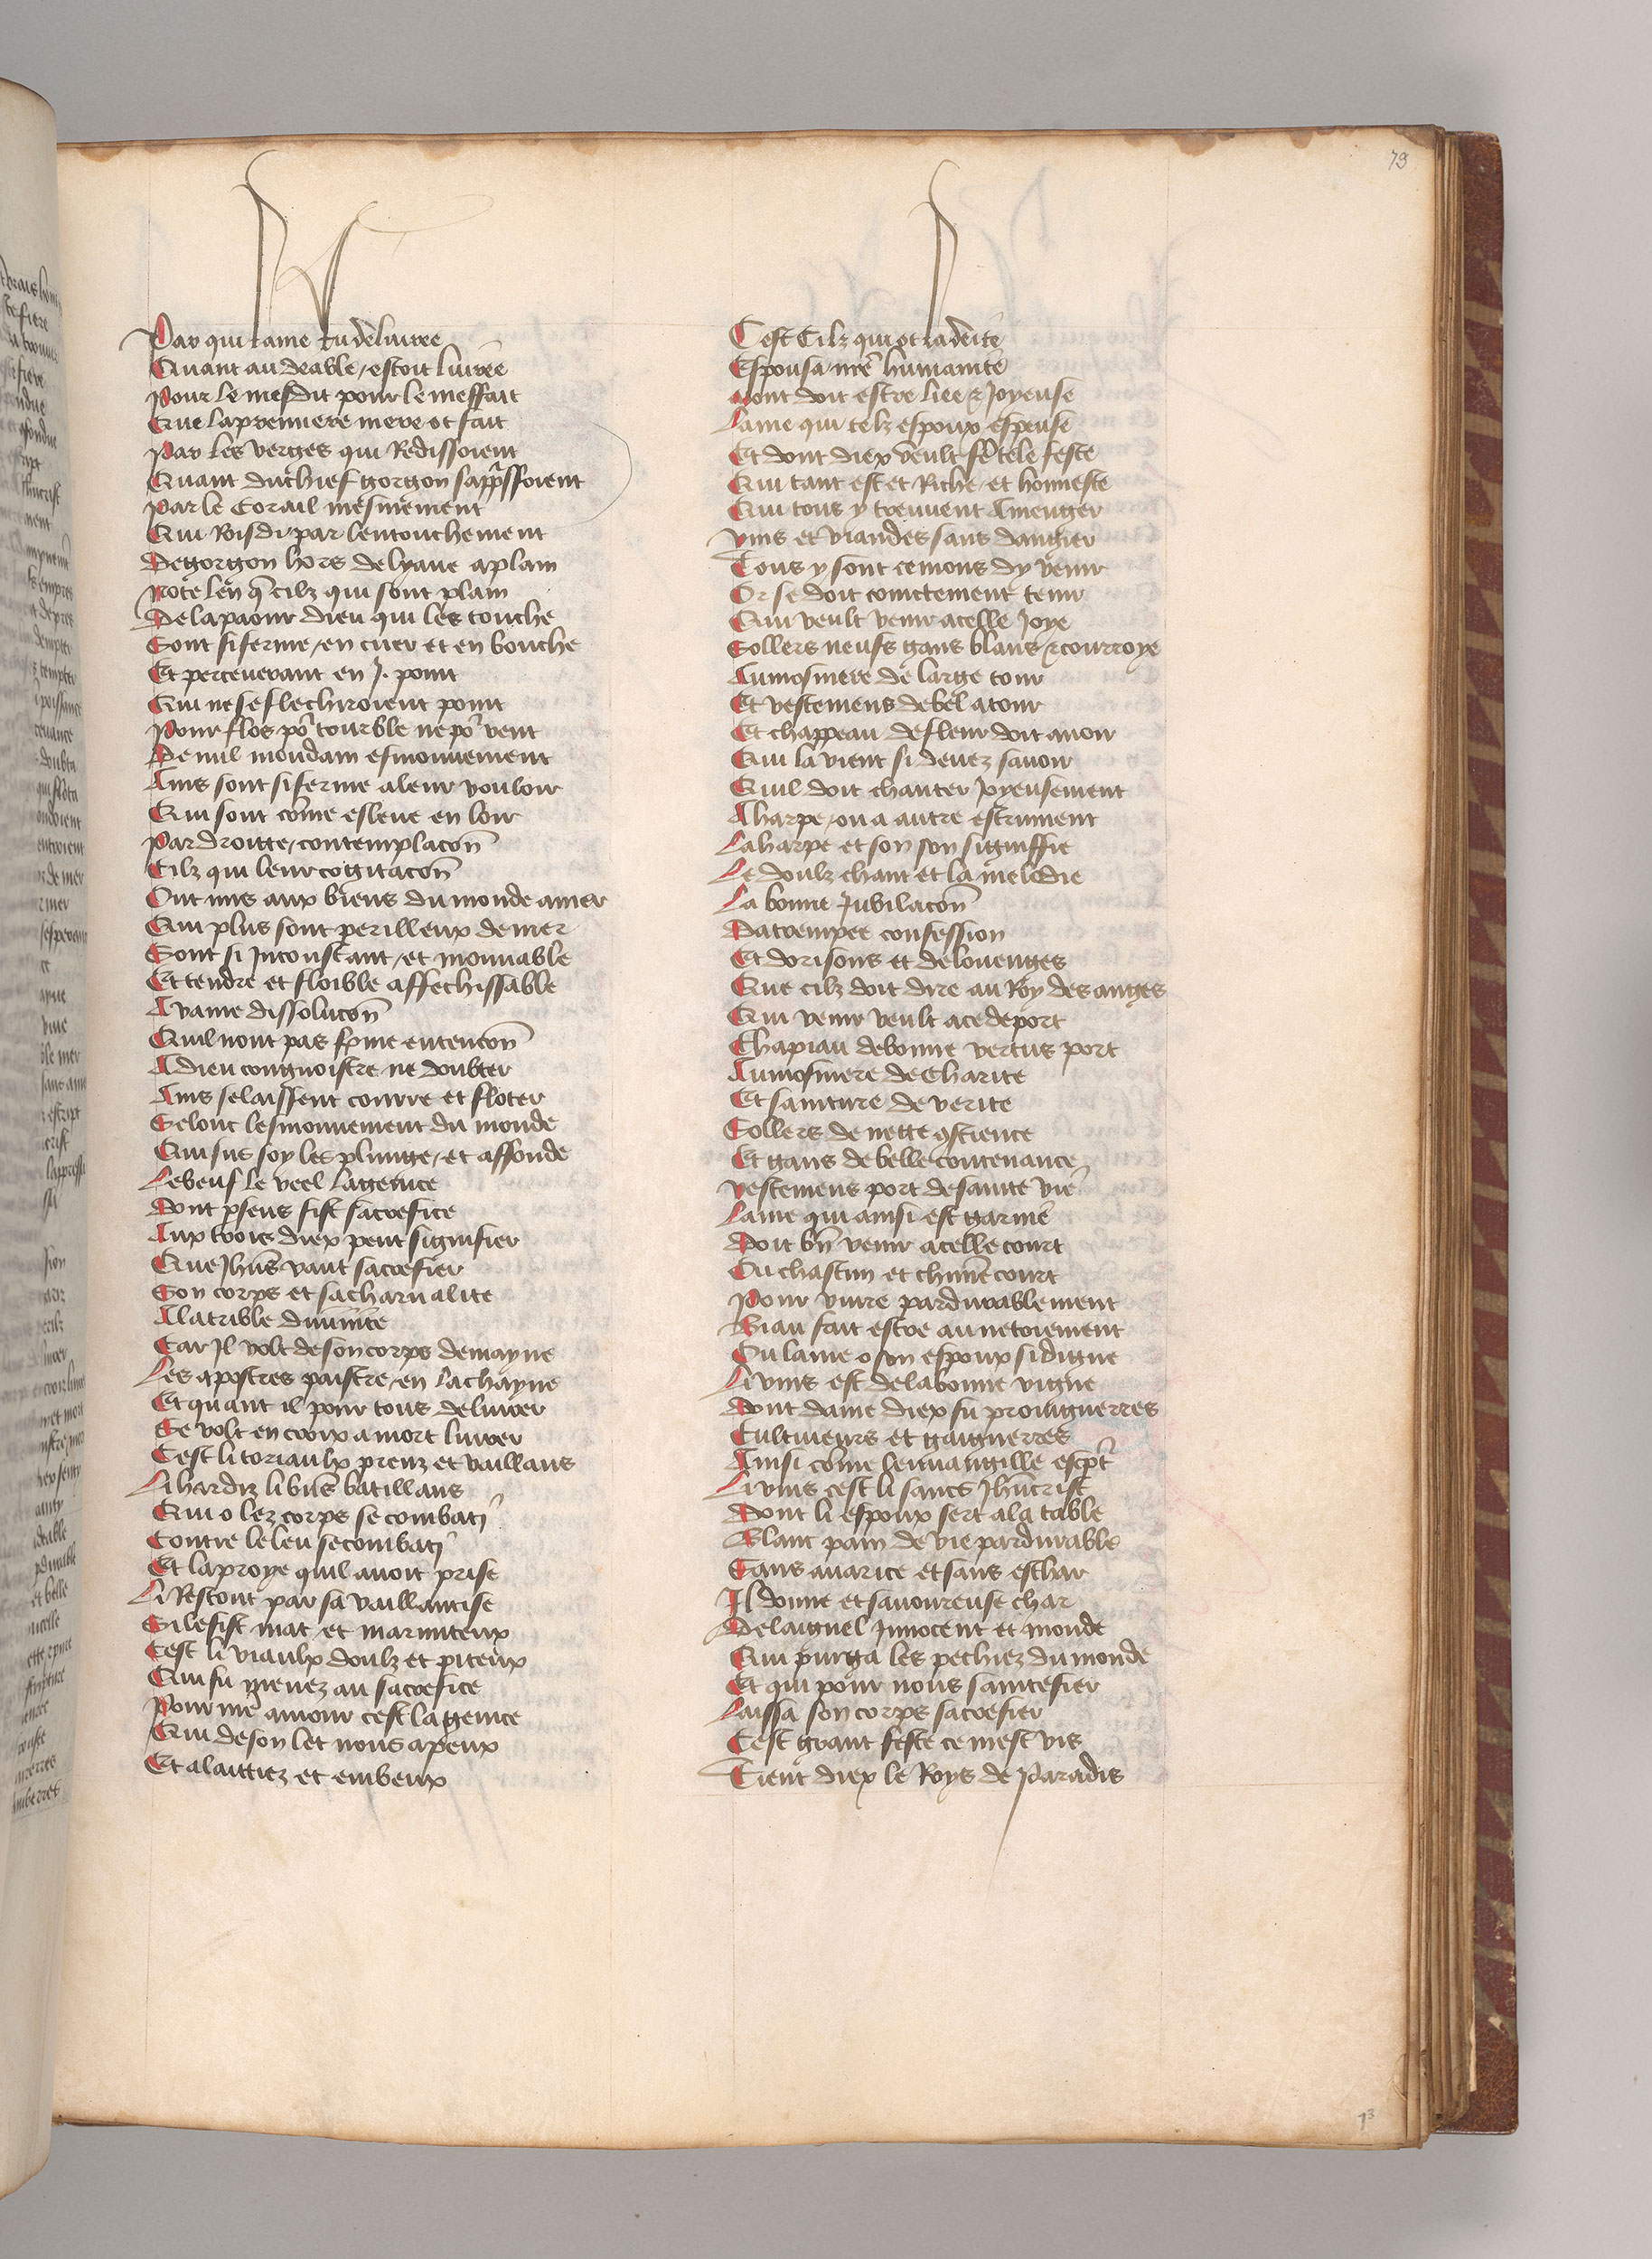 79
Par qui lame fu deliuree
Quant au deable estoit liuree
Pour le mesdit pour le meffait
Que la premiere mere ot fait
Par les verges qui Redissoient
Quant du chief gorgon sapprssoient
Par le Corail mesmement
Qui Roisdi par lentouchement
De gorgon hors de lyaue a plain
Note len q cilz qui sont plain
De la paour dieu qui les touche
Sont si ferme en cuer et en bouche
Et perceuerant en J. point
Qui ne se flechiroient point
Pour flos por tourble ne por vent
De nul mondain esmouuement
Ains sont si ferme a leur vouloir
Qui sont come esleue en loir
Par droitte contemplacon
Cilz qui leur cogitacon
Ont mis aux biens du monde amer
Qui plus sont perilleux de mer
Sont si Inconstant et mouuable
Et tendre et floible affechissable
A vaine dissolucon
Quil nont pas ferme entencon
A dieu congnoistre ne doubter
Ains se laissent courre et floter
Selonc lesmouuement du monde
Qui sus soy les plunge et affonde
Le beuf le veel la genice
Dont pseus fist sacrefice
Aux trois diex peut signifier
Que Jhus vault sacrefier
Son corps et sa charnalite
A la trible diuinite
Car Il volt de son corps demayne
Les apostres paistre en la chayne
Et quant il pour tous deliurer
Se volt en croix a mort liurer
Cest li toriaulx preuz et vaillans
Li hardiz li bns batillans
Qui o lez corps se combati
Contre le leu se combati
Et la proye quil auoit prise
Li Rescout par sa vaillantise
Si le fist mat et marmiteux
Cest li viaulx doulz et piteux
Qui fu menez au sacrefice
Pour nre amour cest la genice
Qui de son let nous a peux
Et alaittiez et embeux
Cest Cilz qui ot la deite
Espousa nre humanite
Dont doit estre liee & Joyeuse
Lame qui telz espoux espouse
Et dont diex veult fe tele feste
Qui tant est et Riche et honneste
Qui tous y treuuent A menger
Vins et viandes sans dangier
Tous y sont cemons dy venir
Or se doit cointement tenir
Qui veult venir a celle Joye
Sollers neufs gans blans & courroye
Aumosniere de large tour
Et vestemens de bel atour
Et chappeau de fleur doit auoir
Qui la vient si deuez sauoir
Quil doit chanter Joyeusement
A harpe ou a autre estrument
La harpe et son son signiffie
Le doulz chant et la melodie
La bonne Jubilacon
Datrempee confession
Et dorisons et de louenges
Que cilz doit dire au Roy des anges
Qui venir veult a ce deport
Chapiau de bonne vertus port
Aumosniere de Charite
Et sainture de verite
Sollers de nette gscience
Et gans de belle contenance
Vestemens port de sainte vie
Lame qui ainsi est garnie
Doit bn venir a celle court
Ou chascun et chune court
Pour viure pardurablement
Biau fait estre au netoiement
Ou lame o son espoux si digne
Li vins est de la bonne vigne
Dont dame diex fu prouignerres
Cultiueurs et gaignerres
Ainsi come leuuangille escpt
Li vins cest li sancs Jhucrist
Dont li espoux sert a la table
Blanc pain de vie pardurable
Sans auarice et sans eschar
Il donne et sauoureuse char
De laignel Innocent et monde
Qui purga les pechiez du monde
Et qui pour nous saintefier
Laissa son corps sacrefier
Cest grant feste ce mest vis
Tient diex le Roys de Paradis